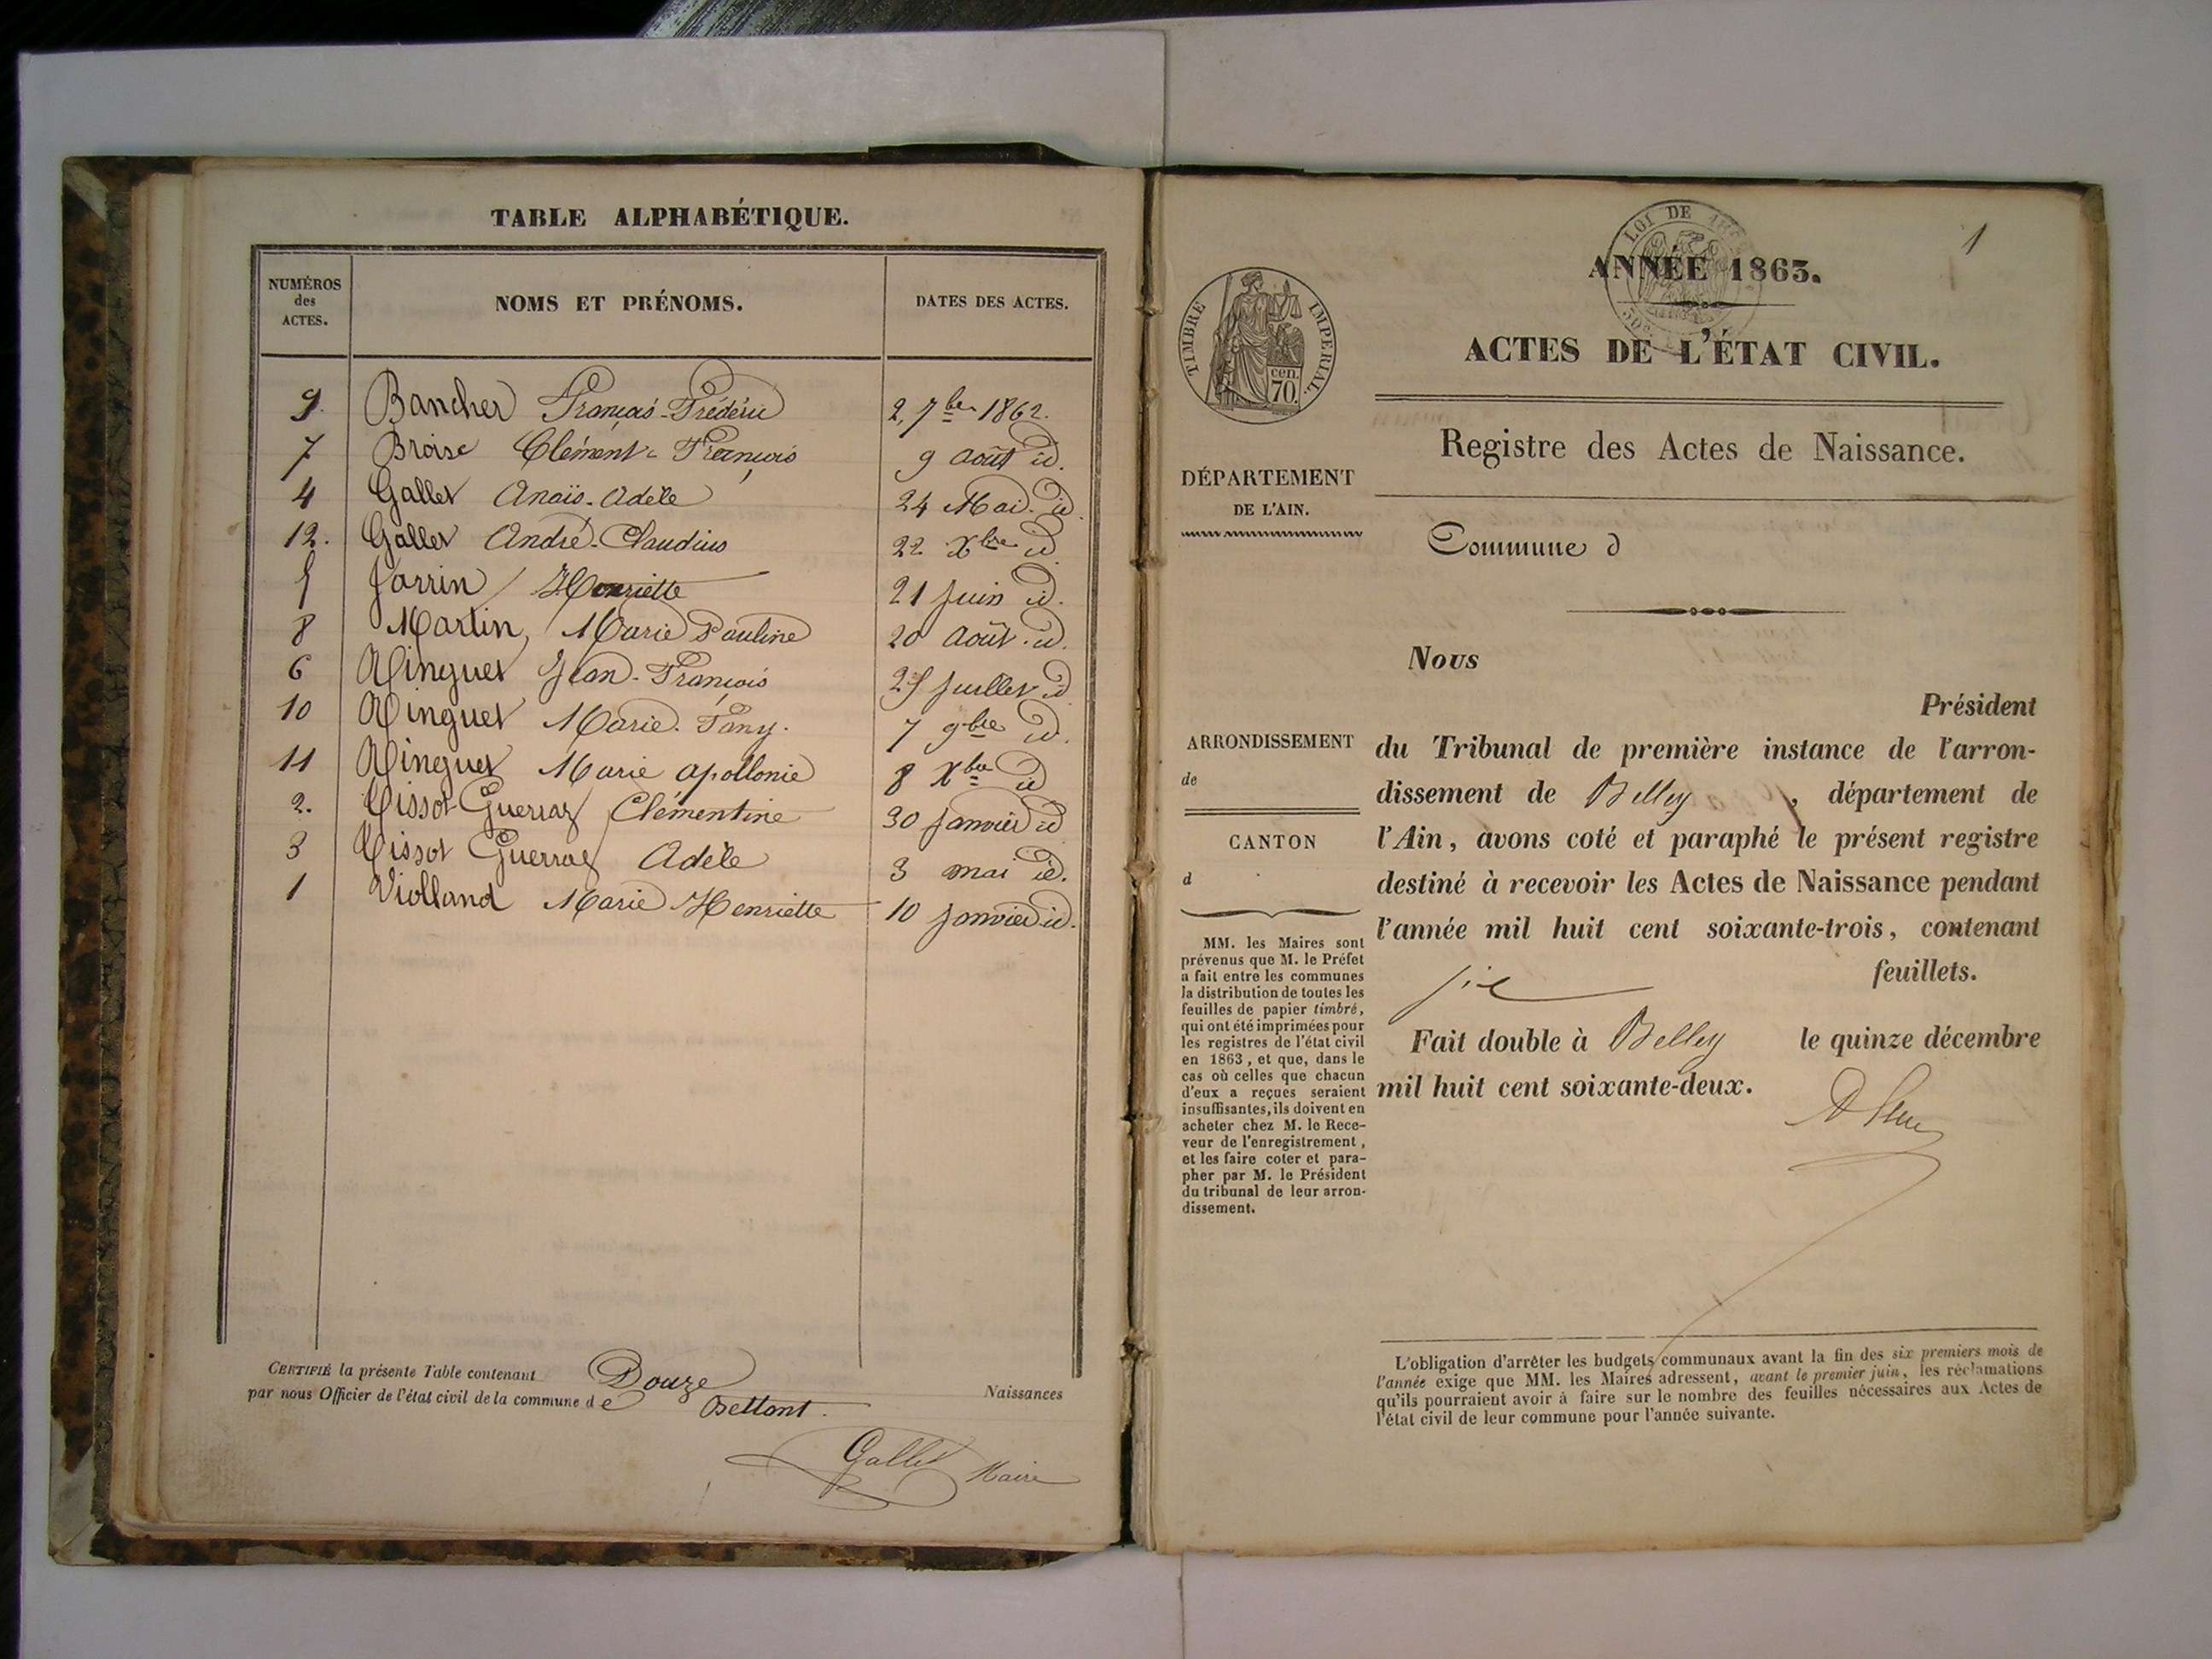 TABLE ALPHABÉTIQUE.
NUMÉROS
des
ACTES.
NOMS ET PRÉNOMS.
DATES DES ACTES.
9. Bancher François-Frédéric 2, 7bre 1862.
7 Broise Clément-François 9 août id.
4 Gallet Anaïs-Adèle 24 Mai id.
12. Gallet André-Claudius 22 Xbre id
5 Jarrin Henriette 21 Juin id.
8 Martin, Marie Pauline 20 Août id.
6 Minguet Jean-François 25 Juillet id
10 Minguet Marie-Fany. 7 9bre id.
11 Minguet Marie Apollonie 8 Xbre id
2. Tissot-Guerraz Clémentine 30 Janvier id
3 Tissot Guerraz Adèle 3 mai id.
1 Violland Marie Henriette 10 Janvier id.
CERTIFIÉ la présente Table contenant Douze Naissances
par nous Officier de l'état civil de la commune de Bettant.
Gallet Maire
1
LOI DE
ANNÉE 1863.
50c
ACTES DE L'ÉTAT CIVIL.
TIMBRE IMPERIAL.
cen.
70.
Registre des Actes de Naissance.
DÉPARTEMENT
DE L'AIN.
Commune d
Nous
Président
ARRONDISSEMENT
de
CANTON
d
du Tribunal de première instance de l'arron-
dissement de Belley, département de
l'Ain, avons coté et paraphé le présent registre
destiné à recevoir les Actes de Naissance pendant
l'année mil huit cent soixante-trois, contenant
six feuillets.
Fait double à Belley le quinze décembre
mil huit cent soixante-deux.
MM. les Maires sont
prévenus que M. le Préfet
a fait entre les communes
la distribution de toutes les
feuilles de papier timbré,
qui ont été imprimées pour
les registres de l'état civil
en 1863, et que, dans le
cas où celles que chacun
d'eux a reçues seraient
insuffisantes, ils doivent en
acheter chez M. le Rece-
veur de l'enregistrement,
et les faire coter et para-
pher par M. le Président
du tribunal de leur arron-
dissement.
L'obligation d'arrêter les budgets communaux avant la fin des six premiers mois de
l'année exige que MM. les Maires adressent, avant le premier juin, les réclamations
qu'ils pourraient avoir à faire sur le nombre des feuilles nécessaires aux Actes de
l'état civil de leur commune pour l'année suivante.